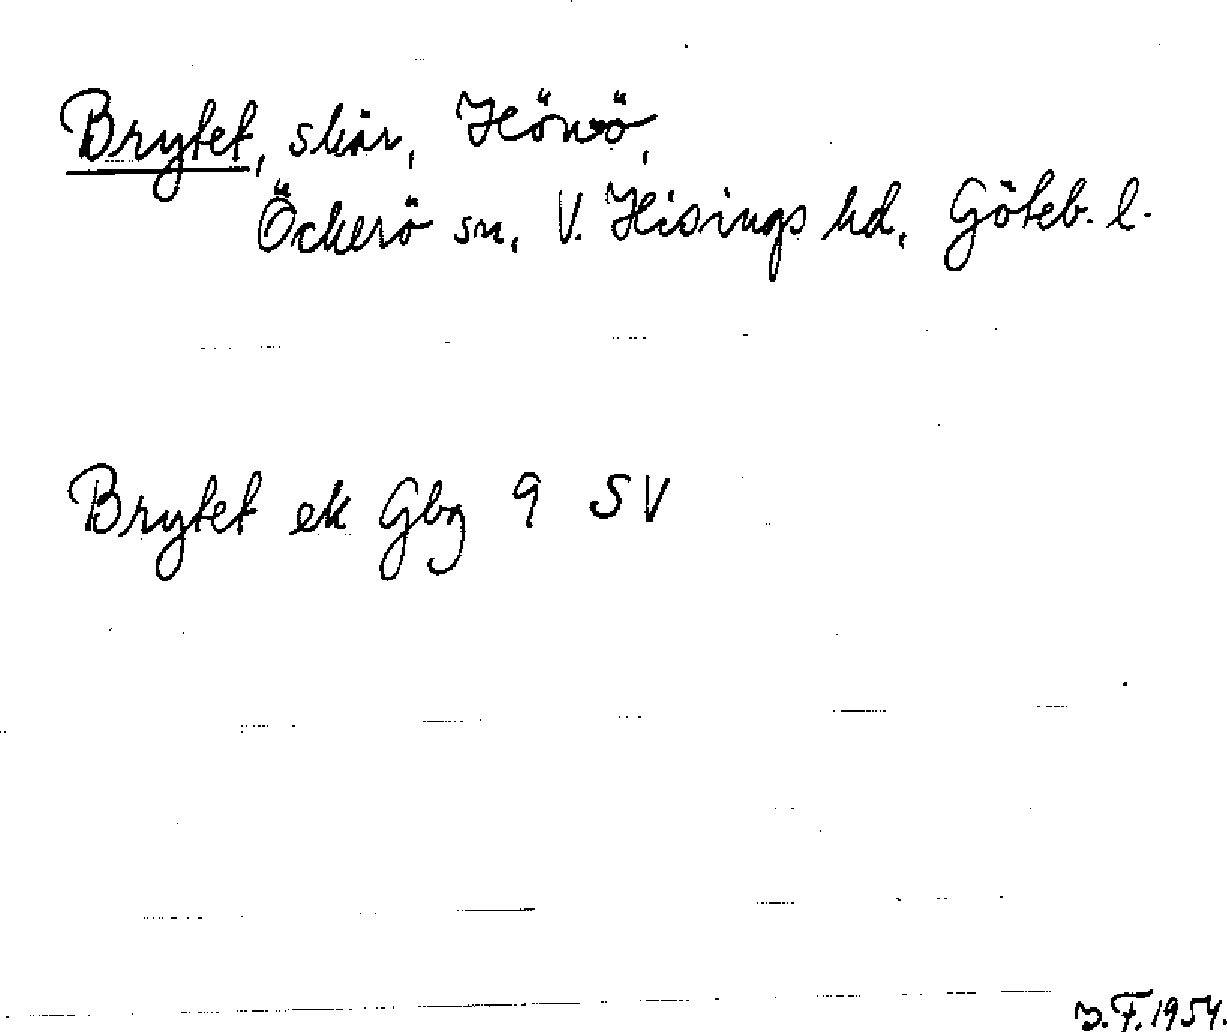 Brytet, skär, Hönö,
Öckerö sn, V. Hisings hd, Göteb. l.
Brytet ek Gbg 9 SV
J.F. 1954.